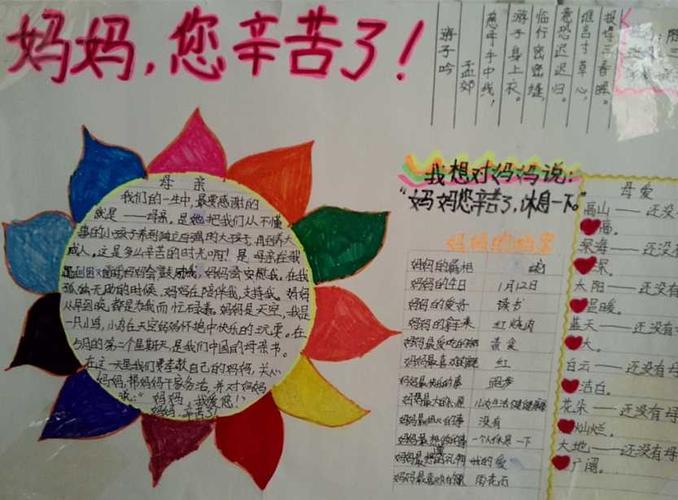 妈妈，您辛苦了！
游子吟
孟郊
慈母手中线！
游子身上衣。
临行密密缝，
意恐迟迟归。
谁言寸草心，
报得三春晖。
母亲
我们的一生中，最要感谢的
就是——母亲。是她把我们从不懂
事的小孩子养到独立自强的大孩子，再培养大
成人。这是多么辛苦的时光啊！是母亲在我
遇到困难的时候会鼓励我，妈妈会安慰我。在我
孤独无助的时候，妈妈在陪伴我，支持我。妈妈
从早到晚，都是为我而忙碌着。妈妈是天空，我是
一只小鸟，小鸟在天空妈妈怀抱中快乐的玩耍。在
5月的第二个星期天，是我们中国的母亲节。
在这一天里我们要孝敬自己的妈妈，关心
妈妈，帮妈妈干家务活，并对妈妈
说："妈妈，我爱您！"
妈妈，辛苦了！
我想对妈妈说：
"妈妈您辛苦了，休息一下。
妈妈的档案
妈妈的属相
妈妈的生日 1月12日
妈妈的爱好 读书
妈妈的拿手菜 红烧肉
妈妈最爱吃的
妈妈最喜欢的颜色 红
妈妈最快乐的事 跑步
妈妈最大的心愿
妈妈最 的事 没有
妈妈最想的事 一个人休息一下
妈妈最想的礼物 我的爱
妈妈最喜欢
母爱
高山——还没
高。
深海——还没有
深。
太阳——还没有
温暖。
蓝天——还没有
大。
白云——还没有母
洁白。
花朵——还没有母
灿烂。
大地——还没有母
广阔。